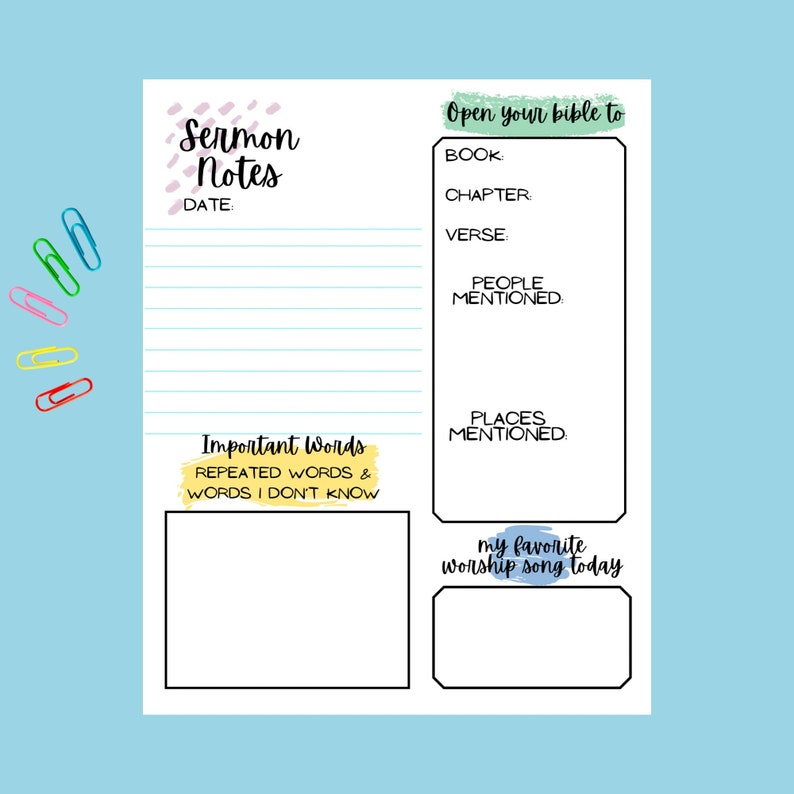 Sermon
Notes
DATE:
Important Words
REPEATED WORDS &
WORDS I DON'T KNOW
Open your bible to
BOOK:
CHAPTER:
VERSE:
PEOPLE
MENTIONED:
PLACES
MENTIONED:
my favorite
worship song today